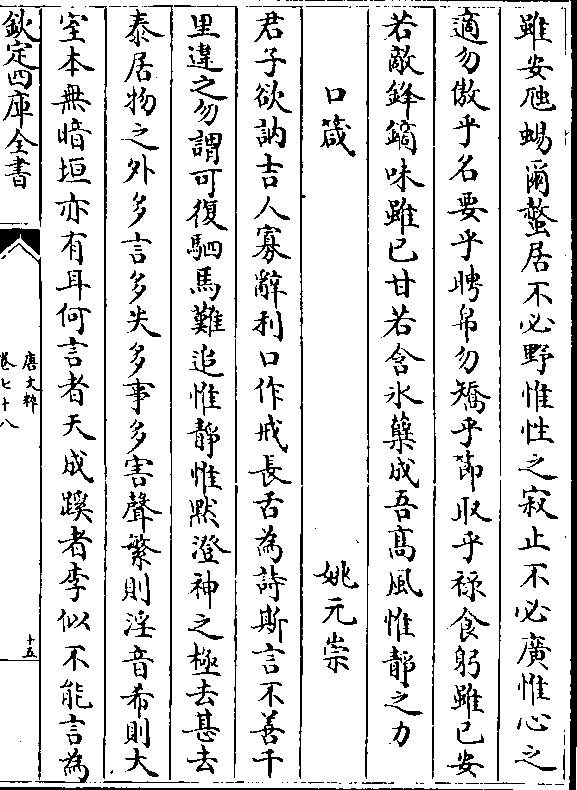 雖安虺蜴爾螯居不必野惟性之寂止不必廣惟心之
適勿傲乎名要乎聘帛勿矯乎節収乎禄食躬雖已安
若敵鋒鏑味雖已甘若含氷蘖成吾髙風惟靜之力
口箴
姚元崇
君子欲訥吉人寡辭利口作戒長舌為詩斯言不善千
里違之勿謂可復駟馬難追惟静惟黙澄神之極去甚去
泰居物之外多言多失多事多害聲繁則淫音希則大
室本無暗垣亦有耳何言者天成蹊者李似不能言為
欽定四庫全書
唐文粹
卷七十八
十五